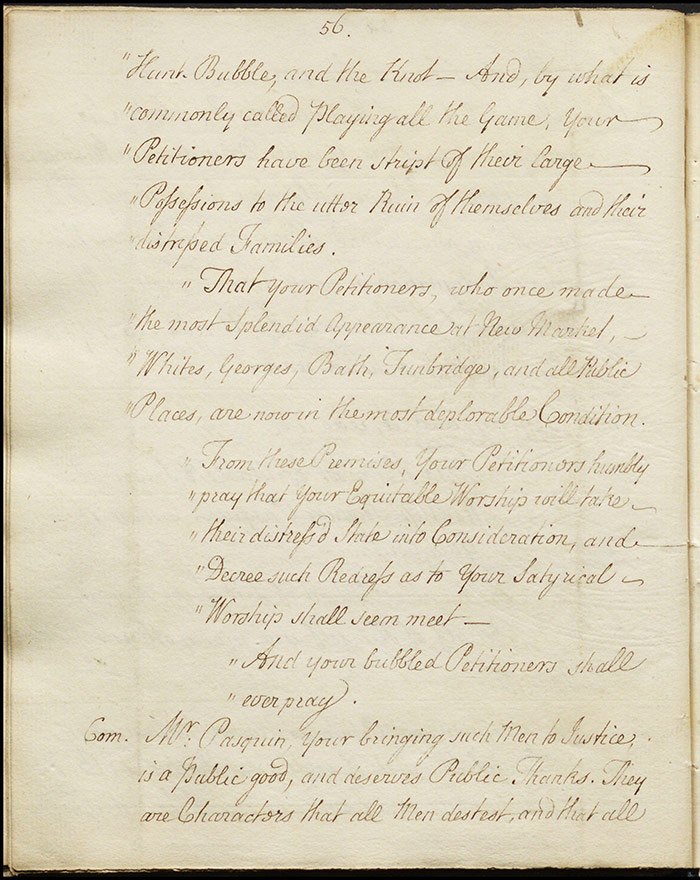 56.
"Hunt Bubble, and the Knot — And, by what is
"commonly called Playing all the Game, Your
"Petitioners have been stript of their large
"Possessions to the utter Ruin of themselves and their
"distressed Families.
"That your Petitioners, who once made
"the most Splendid Appearance at New Market,
"Whites, Georges, Bath, Tunbridge, and all Public
"Places, are now in the most deplorable Condition.
"From these Premises, Your Petitioners humbly
"pray that Your Equitable Worship will take
"their distress'd State into Consideration, and
"Decree such Redress as to Your Satyrical
"Worship shall seem meet —
"And your bubbled Petitioners shall
"ever pray.
Com. Mr. Pasquin, Your bringing such Men to Justice,
is a Public good, and deserves Public Thanks. They
are Characters that all Men destest, and that all